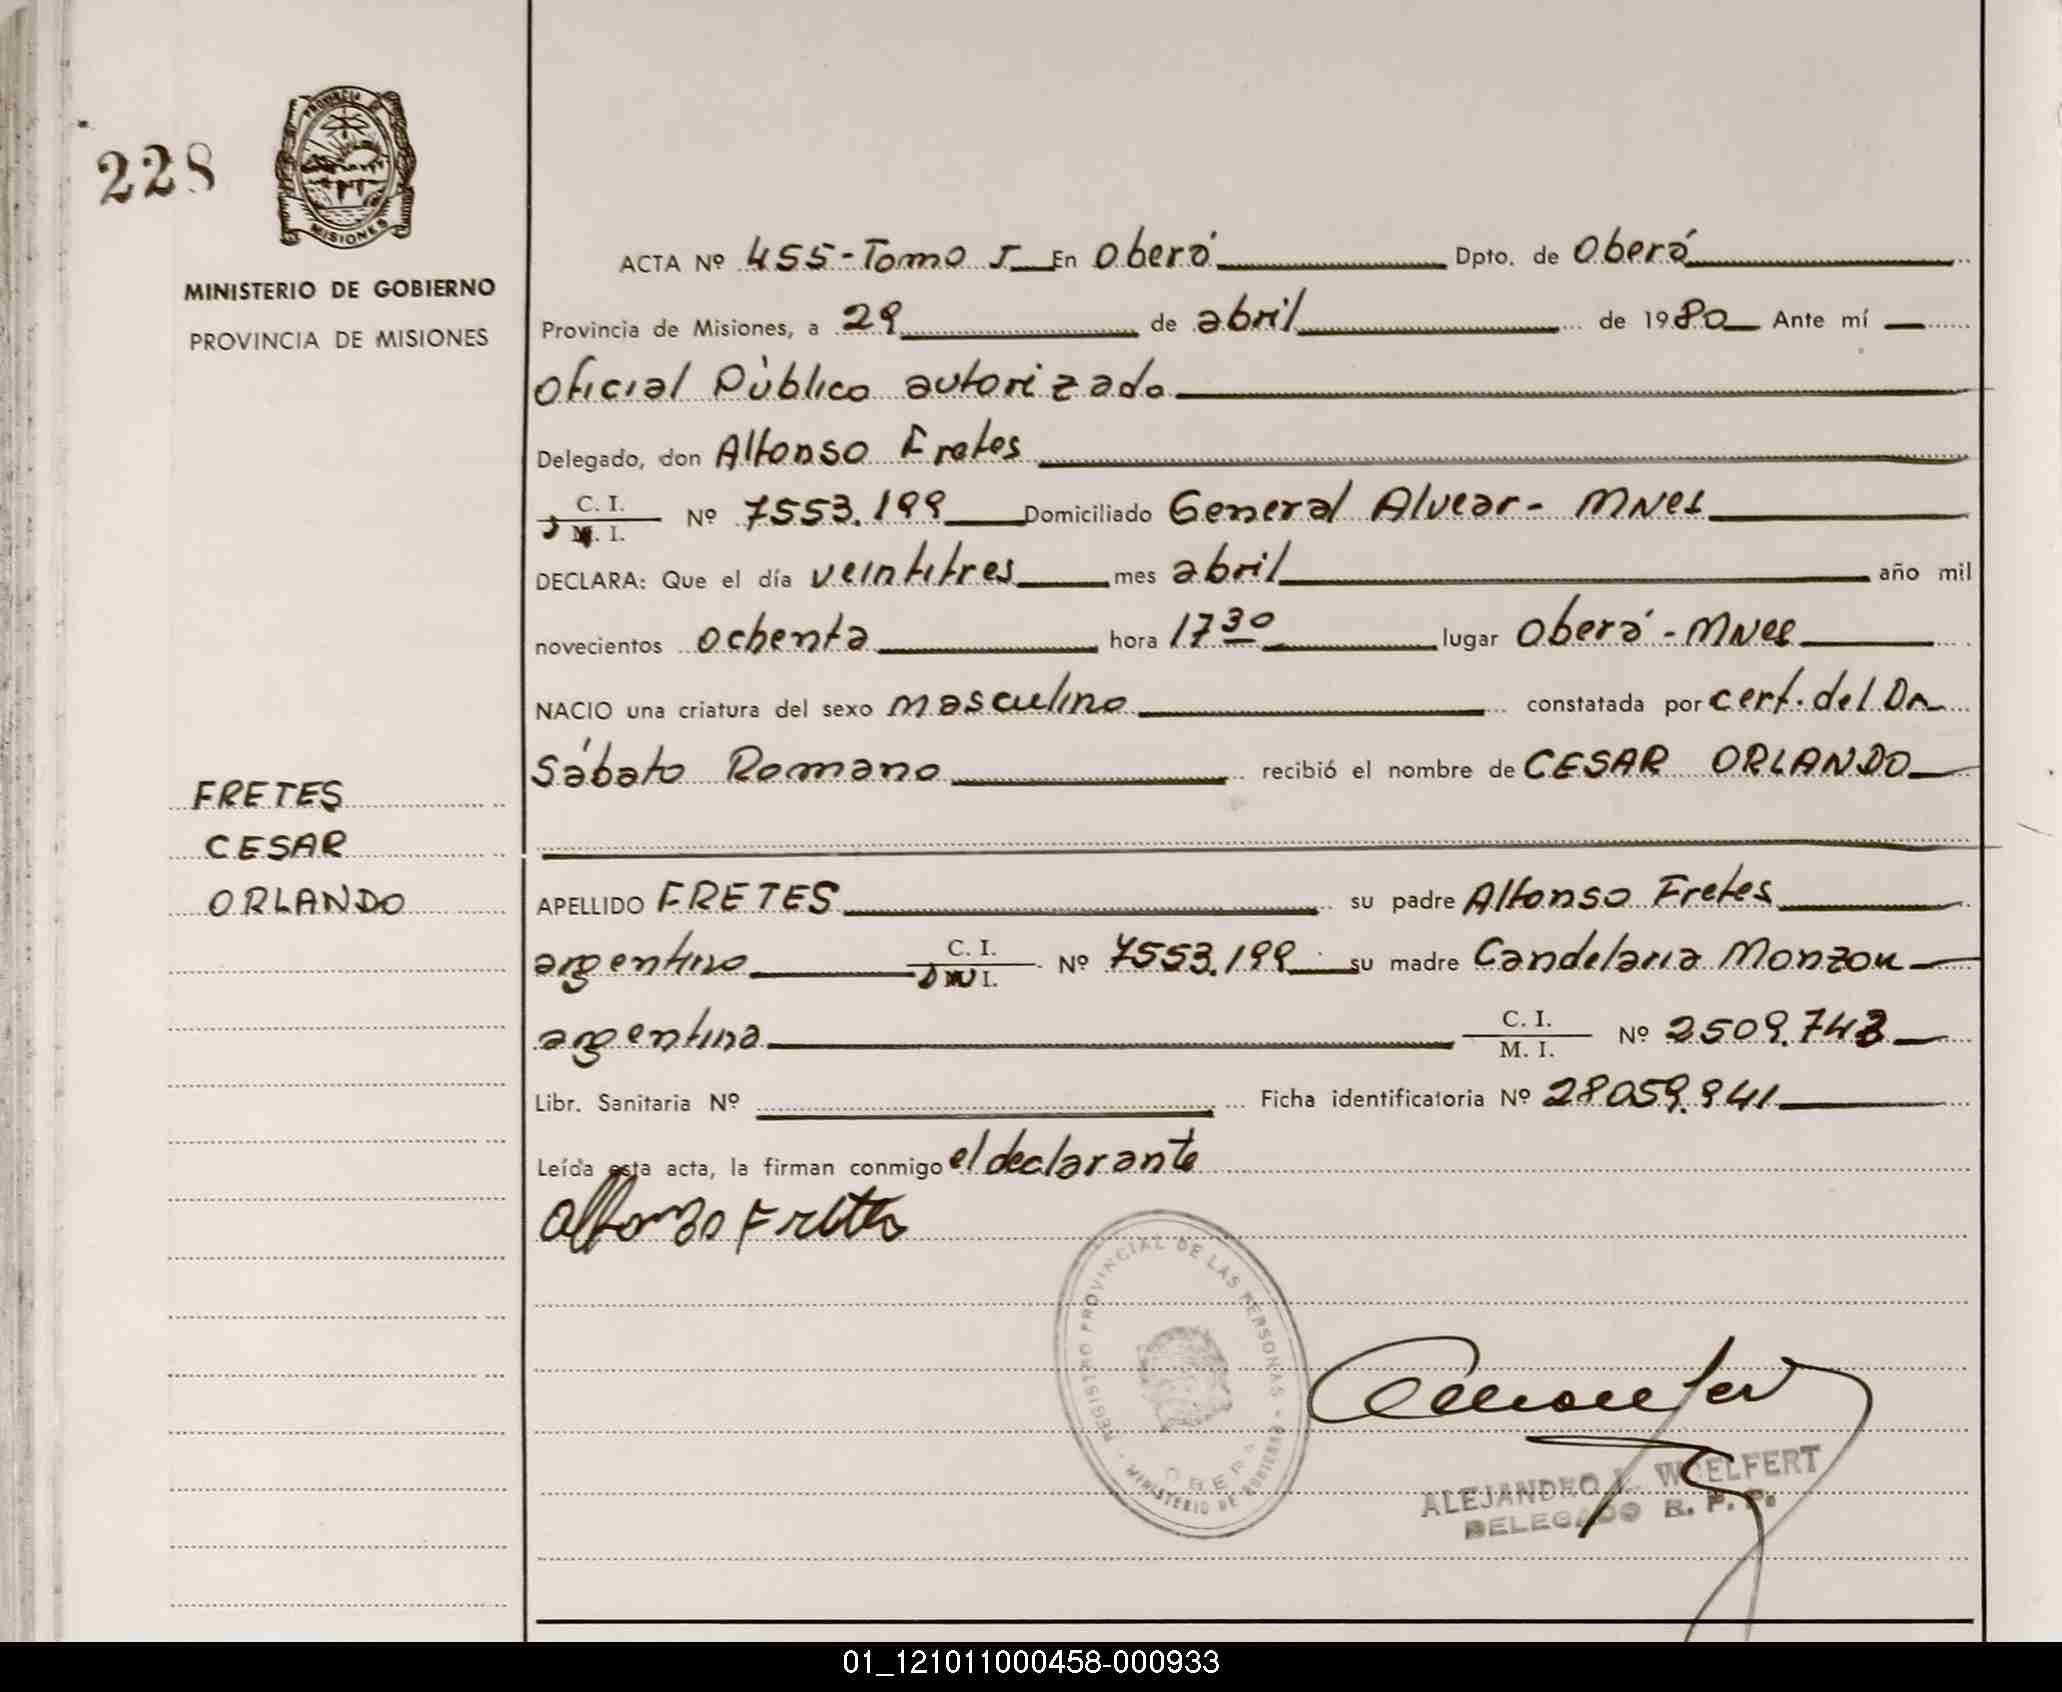 228
PROVINCIA DE
MISIONES
MINISTERIO DE GOBIERNO
PROVINCIA DE MISIONES
FRETES
CESAR
ORLANDO
ACTA Nº 455-Tomo I En Oberá Dpto. de Oberá
Provincia de Misiones, a 29 de abril de 1980 Ante mí
Oficial Público autorizado
Delegado, don Alfonso Fretes
C. I.
M. I. Nº 7553.199 Domiciliado General Alvear - MNes
DECLARA: Que el día veintitres mes abril año mil
novecientos ochenta hora 17 30 lugar Oberá - MNes
NACIO una criatura del sexo masculino constatada por cert. del Dr
Sábato Romano recibió el nombre de CESAR ORLANDO
APELLIDO FRETES su padre Alfonso Fretes
argentino C. I. DNI. Nº 7553.199 su madre Candelaria Monzon
argentina C. I. M. I. Nº 2509.743
Libr. Sanitaria Nº Ficha identificatoria Nº 28059.941
Leída esta acta, la firman conmigo el declarante
Alfonzo Fretes
REGISTRO PROVINCIAL DE LAS PERSONAS - MINISTERIO DE GOBIERNO -
OBERA
ALEJANDRO L. WOELFERT
DELEGADO R. P. P.
01_121011000458-000933